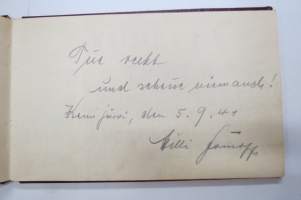 Tue recht
und scheue niemand!
Kemijärvi, den 5.9.41
Willi